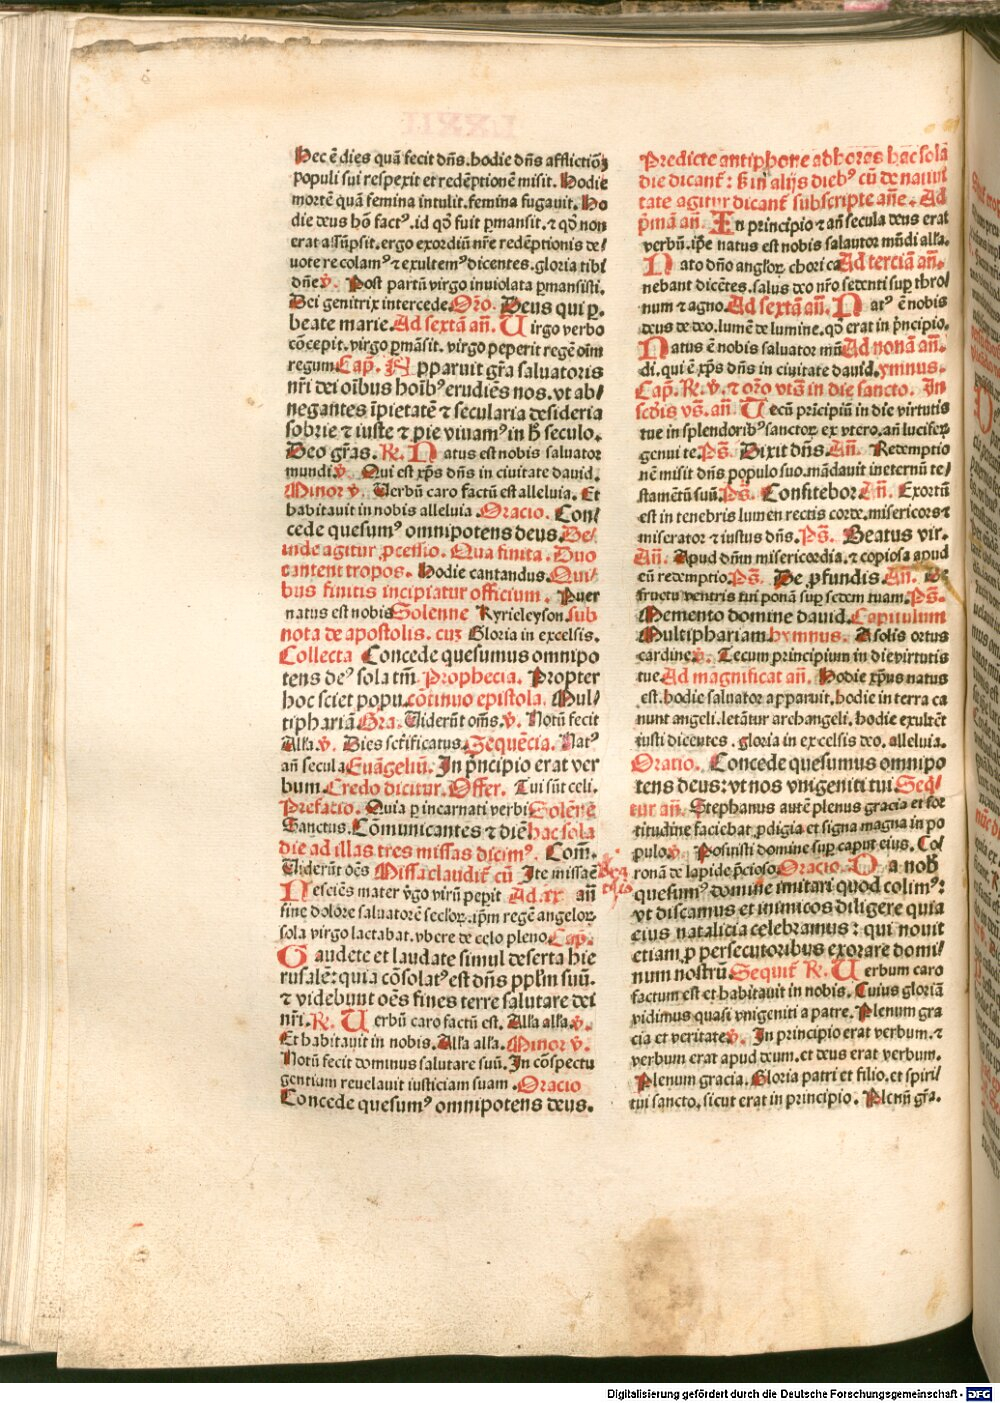 Hec ē dies quā fecit dn̄s. hodie dn̄s afflictiōꝫ
populi sui respexit et redēptionē misit. Hodie
mortē quā femina intulit. femina fugauit. Ho
die deus hō factꝰ. id qd̄ fuit ꝑmansit. ⁊ qd̄ non
erat assūpsit. ergo exordiū nr̄e redēptionis de/
uote recolamꝰ ⁊ exultemꝰ dicentes. gloria tibi
dn̄e. v̄. Post partū virgo inuiolata ꝑmansisti.
Dei genitrix intercede Or̄o. Deus qui ꝑ.
beate marie. Ad sextā an̄. Uirgo verbo
cōcepit. virgo ꝑmāsit. virgo peperit regē oīm
regum Cap̄. Apparuit gr̄a saluatoris
nr̄i dei oībus hoībꝰ erudiēs nos. vt ab/
negantes īpietatē ⁊ secularia desideria
sobrie ⁊ iuste ⁊ pie viuamꝰ in h̄ seculo.
Deo gr̄as. R̄. Natus est nobis saluator
mundi v̄. Qui est xp̄s dn̄s in ciuitate dauid.
Minor v̄. Uerbū caro factū est alleluia. Et
habitauit in nobis alleluia. Oracio. Con/
cede quesumꝰ omnipotens deus. De/
inde agitur ꝓcessio. Qua finita. Duo
cantent tropos. Hodie cantandus. Qui/
bus finitis incipiatur officium. Puer
natus est nobis Solenne Kyrieleyson. sub
nota de apostolis. cuꝫ Gloria in excelsis.
Collecta Concede quesumus omnipo
tens deꝰ sola tm̄. Prophecia. Propter
hoc sciet popu. cōtinuo epistola. Mul/
tiphariā Gra. Uiderūt om̄s. v̄. Notū fecit
Alla. v̄. Dies sc̄tificatus. Sequēcia. Natꝰ
an̄ secula Euāgeliū. In p̄ncipio erat ver
bum. Credo dicitur. Offer. Tui sūt celi.
Prefacio. Quia ꝑ incarnati verbi Solēne
Sanctus. Cōmunicantes ⁊ diē hac sola
die ad illas tres missas dicimꝰ. Com̄.
Uiderūt oēs Missa claudit̄ cū Ite missa ē
Nesciēs mater v̓go virū peꝑit Ad. ix an̄
sine dolore saluatorē secloꝝ. ip̄m regē angeloꝝ
sola virgo lactabat. vbere de celo pleno. Cap̄.
Gaudete et laudate simul deserta hie
rusalē: quia cōsolatꝰ est dn̄s pp̄lm suū.
⁊ videbunt oēs fines terre salutare dei
nr̄i. R̄. Uerbū caro factū est. Alla alla. v̄.
Et habitauit in nobis. Alla alla. Minor v̄.
Notū fecit dominus salutare suū. In cōspectu
gentium reuelauit iusticiam suam. Oracio
Concede quesumꝰ omnipotens deus.
Predicte antiphone ad horas hac sola
die dicant̄: s̄ in alijs diebꝰ cū de natiui
tate agitur dicant̄ subscripte an̄e. Ad
p̄mā an̄. In principio ⁊ an̄ secula deus erat
verbū. ip̄e natus est nobis saluator mūdi alla.
Nato dn̄o angl̓oꝝ chori ca Ad terciā an̄.
nebant dicētes. salus deo nr̄o sedenti suꝑ thro/
num ⁊ agno. Ad sextā an̄. Natꝰ ē nobis
deus de deo. lumē de lumine. qd̄ erat in p̄ncipio.
Natus ē nobis saluator mū Ad nonā an̄.
di. qui ē xp̄s dn̄s in ciuitate dauid. ymnus.
Cap̄. R̄. v̄. ⁊ or̄o vts̄ in die sancto. In
sc̄dis vs̄. an̄. Tecū prīcipiū in die virtutis
tue in splendoribꝰ sanctoꝝ ex vtero. an̄ lucifeꝝ
genui te. Ps̄. Dixit dn̄s. An̄. Redemptio
nē misit dn̄s populo suo. mādauit in eternū te/
stamētū suū. Ps̄. Confitebor An̄. Exortū
est in tenebris lumen rectis corde. misericors ⁊
miserator ⁊ iustus dn̄s. Ps̄. Beatus vir.
An̄. Apud dn̄m misericordia. ⁊ copiosa apud
eū redemptio. Ps̄. De ꝓfundis. An̄. De
fructu ventris tui ponā suꝑ sedem tuam. Ps̄.
Memento domine dauid. Capitulum
Multiphariam hymnus. A solis ortus
cardine. v̄. Tecum principium in die virtutis
tue. Ad magnificat an̄. Hodie xp̄us natus
est. hodie saluator apparuit. hodie in terra ca
nunt angeli. letāt̄ur archangeli. hodie exultēt
iusti dicentes. gloria in excelsis deo. alleluia.
Oratio. Concede quesumus omnipo
tens deus: vt nos vnigeniti tui. Seq̄/
tur an̄. Stephanus autē plenus gracia et for
titudine faciebat ꝓdigia et signa magna in po
pulo. v̄. Posuisti domine suꝑ caput eius. Co/
ronā de lapide p̄cioso. Oracio. Da nob̄
quesumꝰ domine imitari quod colimꝰ:
vt discamus et inimicos diligere quia
eius natalicia celebramus: qui nouit
etiam ꝓ persecutoribus exorare domi/
num nostrū. Sequit̄ R̄. Uerbum caro
factum est et habitauit in nobis. Cuius gloriā
vidimus quasi vnigeniti a patre. Plenum gra
cia et veritate. v̄. In principio erat verbum. ⁊
verbum erat apud deum. et deus erat verbum.
Plenum gracia. Gloria patri et filio. et spiri/
tui sancto. sicut erat in principio. Plenū gr̄a.
Digitalisierung gefördert durch die Deutsche Forschungsgemeinschaft - DFG